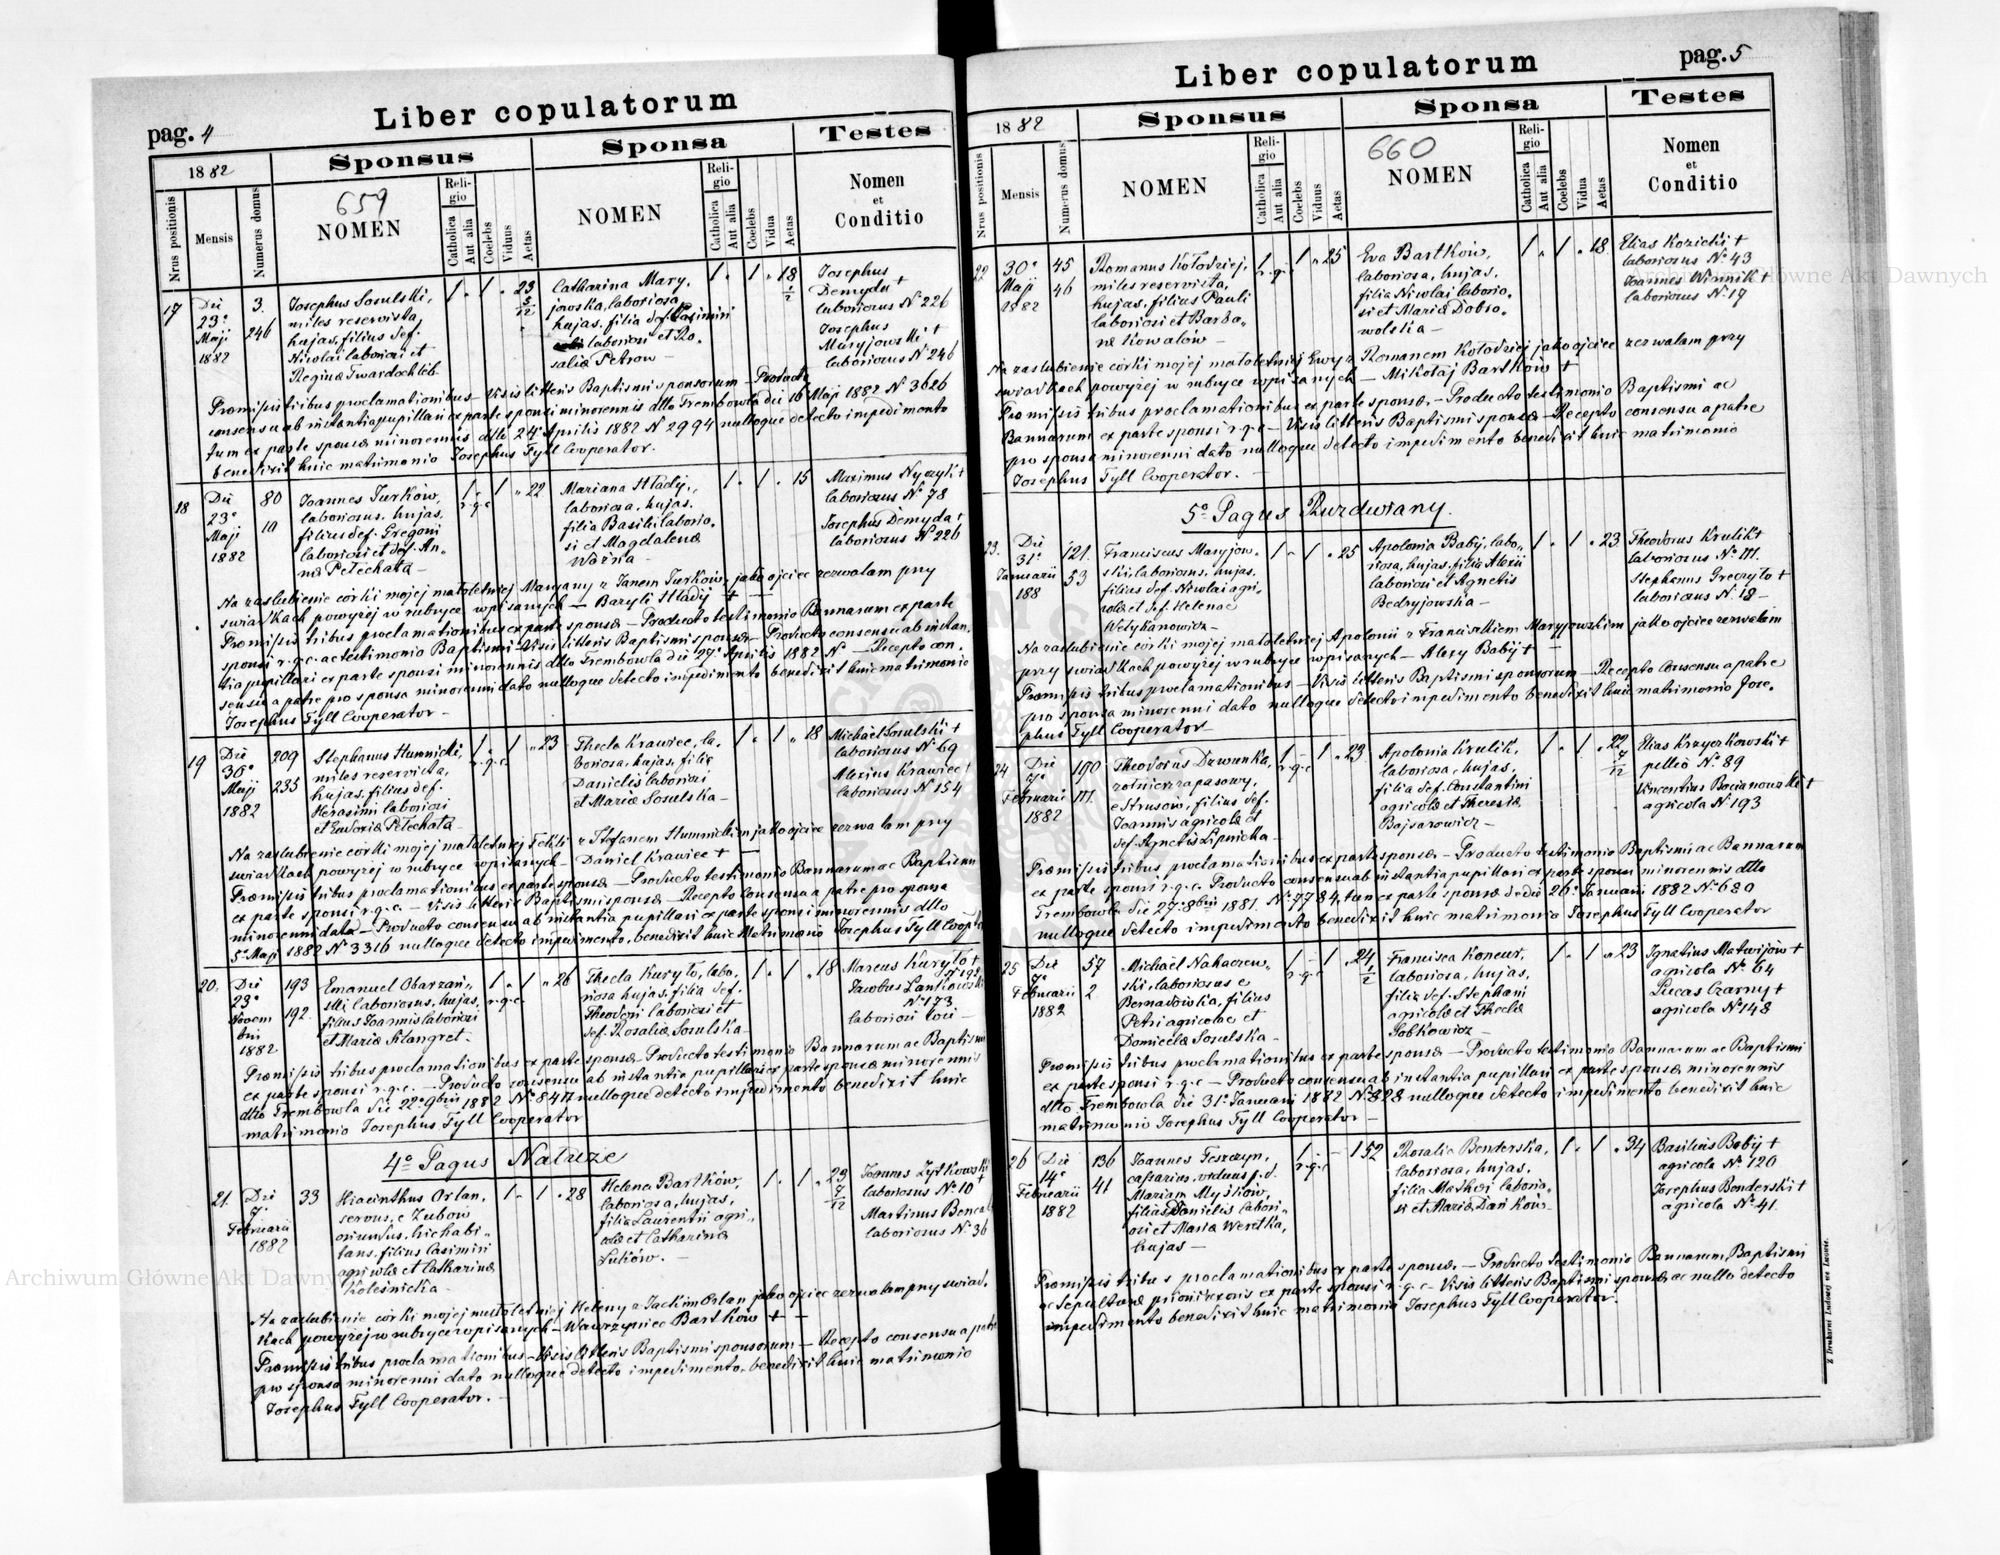 Liber copulatorum
pag. 4
1882
Sponsus
Sponsa
Testes
Nrus positionis
Mensis
Numerus domus
659
NOMEN
Religio
Catholica
Aut alia
Coelebs
Viduus
Aetas
NOMEN
Religio
Catholica
Aut alia
Coelebs
Vidua
Aetas
Nomen
et
Conditio
17
Die
23ª
Maji
1882
3.
246
Josephus Sosulski,
miles reservista,
hujas, filius def.
Nicolai laboriosi et
Reginæ Twardochleb
1 . 1 . 23 5/12
Catharina Mary,
jowska, laboriosa,
hujas. filia def. Casimiri
laboriosi et Ro,
saliæ Petrow —
1 . 1 „ 18 1/2
Josephus
Demyda +
laboriosus Nº 226
Josephus
Maryjowski +
laboriosus Nº 246
Præmissis tribus proclamationibus — Visis litteris Baptismi sponsorum — Producto
consensu ab instantia pupillari ex parte sponsi minorennis dtto Trembowla die 16 Maji 1882 Nº 3626
tum ex parte sponsæ minorennis dtto 24ª Aprilis 1882 Nº 2994 nulloque detecto impedimento
benedixit huic matrimonio Josephus Tyll Cooperator.
18
Die
23ª
Maji
1882
80
10
Joannes Turków,
laboriosus, hujas.
filius def. Gregorii
laboriosi et def. An„
næ Petechata —
1 . 1 „ 22
r.g.c
Mariana Hładij,
laboriosa, hujas.
filia Basilii laborio„
si et Magdalenæ
Woźna —
1 . 1 . 15
Maximus Nyczyk +
laboriosus Nº 78
Josephus Demyda +
laboriosus Nº 226
Na zaslubienie córki mojej małoletniej Maryany z Janem Turków, jako ojciec zezwalam przy
swiadkach powyżej w rubryce wpisanych — Bazyli Hładij +
Præmissis tribus proclamationibus ex parte sponsæ — Producto testimonio Bannarum ex parte
sponsi r.g.c. ac testimonio Baptismi — Visis litteris Baptismi sponsæ — Producto consensu ab instan,
tia pupillari ex parte sponsi minorennis dtto Trembowla die 27ª Aprilis 1882 Nº — Recepto con,
sensu a patre pro sponsa minorenni dato nulloque detecto impedimento benedixit huic matrimonio
Josephus Tyll Cooperator —
19
Die
30ª
Maji
1882
209
235
Stephanus Humnicki,
miles reservista,
hujas, filius def.
Herasimi laboriosi
et Eudoxiæ Petechata
1 . 1 „ 23
r.g.c.
Thecla Krawiec, la„
boriosa, hujas, filia
Danielis laboriosi
et Mariæ Sosulska —
1 . 1 „ 18
Michael Sosulski +
laboriosus Nº 69
Alexius Krawiec +
laboriosus Nº 154
Na zaslubienie córki mojej małoletniej Tekli z Stefanem Humnickim jako ojciec zezwalam przy
swiadkach powyżej w rubryce wpisanych — Daniel Krawiec +
Præmissis tribus proclamationibus ex parte sponsæ — Producto testimonio Bannarum ac Baptismi
ex parte sponsi r.g.c. — Visis litteris Baptismi sponsæ — Recepto consensu a patre pro sponsa
minorenni dato — Producto consensu ab instantia pupillari ex parte sponsi minorennis dtto
5ª Maji 1882 Nº 3316 nulloque detecto impedimento, benedixit huic Matrimonio Josephus Tyll
20.
Die
23ª
Novem
bris
1882
193
192.
Emanuel Obarzań„
ski laboriosus, hujas,
filius Joannis laboriosi
et Mariæ Klangret.
1 . 1 . 26
r.g.c
Thecla Kuryło, labo,
riosa hujas, filia def.
Theodori laboriosi et
def. Rosaliæ Sosulska
1 . 1 . 18
Marcus Kuryło +
Jacobus
Nº 173
laboriosi loci —
Præmissis tribus proclamationibus ex parte sponsæ — Producto testimonio Bannarum ac Baptismi
ex parte sponsi r.g.c. — Producto consensu ab instantia pupillari ex parte sponsæ minorennis
dtto Trembowla die 22ª 9bris 1882 Nº nulloque detecto impedimento benedixit huic
matrimonio Josephus Tyll Cooperator
4º Pagus Naluże
21.
Die
7ª
Februarii
1882
33
Hiacinthus Orlan,
servus, e Zubów
oriundus, hic habi„
tans, filius Casimiri
agricolæ et Catharinæ
Koleśnicka —
1 . 1 . 28
Helena Bartków,
laboriosa, hujas,
filia Laurentii agri„
colæ et Catharinæ
Luków. —
1 . 1 . 23 7/12
Joannes Żytkowski +
laboriosus Nº 10
Martinus
laboriosus Nº 36
Na zaslubienie córki mojej małoletniej Heleny z Jackim Orlan jako ojciec zezwalam przy swiad,
kach powyżej w rubryce wpisanych — Wawrzyniec Bartków +
Præmissis tribus proclamationibus — Visis litteris Baptismi sponsorum — Recepto consensu a patre
pro sponsa minorenni dato nulloque detecto impedimento benedixit huic matrimonio
Josephus Tyll Cooperator. —
Liber copulatorum
pag. 5
1882
Sponsus
Sponsa
Testes
Nrus positionis
Mensis
Numerus domus
NOMEN
Religio
Catholica
Aut alia
Coelebs
Viduus
Aetas
660
NOMEN
Religio
Catholica
Aut alia
Coelebs
Vidua
Aetas
Nomen
et
Conditio
22
30ª
Maji
1882
45
46
Romanus Kołodziej,
miles reservista,
hujas, filius Pauli
laboriosi et Barba„
ræ Kowalów —
1 . 1 „ 25
r.g.c
Eva Bartków,
laboriosa, hujas.
filia Nicolai laborio„
si et Mariæ Dobro„
wolska —
1 „ 1 . 18
Elias Kozicki +
laboriosus Nº 43
Joannes Winnik +
laboriosus Nº 17
Na zaslubienie córki mojej małoletniej Ewy z Romanem Kołodziej jako ojciec zezwalam przy
swiadkach powyżej w rubryce wpisanych — Mikołaj Bartków +
Præmissis tribus proclamationibus ex parte sponsæ — Producto testimonio Baptismi ac
Bannarum ex parte sponsi r.g.c — Visis litteris Baptismi sponsæ — Recepto consensu a patre
pro sponsa minorenni dato nulloque detecto impedimento benedixit huic matrimonio
Josephus Tyll Cooperator. —
5º Pagus Ruzdwiany.
23.
Die
31ª
Januarii
188
121.
53
Franciscus Maryjow„
ski, laboriosus, hujas,
filius def. Nicolai agri„
colæ et def. Helenae
Wełykanowicz —
1 — 1 . 25
Apolonia Babij, labo„
riosa, hujas, filia Alexii
laboriosi et Agnetis
Bedryjowska —
1 . 1 . 23
Theodorus Krulik +
laboriosus Nº 111.
Stephanus Greczyło +
laboriosus Nº 18 —
Na zaslubienie córki mojej małoletniej Apolonii z Franciszkiem Maryjowskim jako ojciec zezwalam
przy swiadkach powyżej w rubryce wpisanych — Alexy Babij +
Præmissis tribus proclamationibus — Visis litteris Baptismi sponsorum — Recepto Consensu a patre
pro sponsa minorenni dato nulloque detecto impedimento benedixit huic matrimonio Jose„
phus Tyll Cooperator —
24
Die
7ª
Februarii
1882
190
111.
Theodorus Dzwonka,
żołnierz zapasowy,
e Strusów, filius def.
Joannis agricolæ et
def. Agnetis Lipnicka —
1 — 1 . 23
r.g.c
Apolonia Krulik,
laboriosa, hujas,
filia def. Constantini
agricolæ et Theresiæ
Bajsarowicz —
1 . 1 . 22 7/12
Elias Krzyczkowski +
pellio Nº 89
Vincentius Bocianowski +
agricola Nº 193
Præmissis tribus proclamationibus ex parte sponsæ — Producto testimonio Baptismi ac Bannarum
ex parte sponsi r.g.c. Producto consensu ab instantia pupillari ex parte sponsi minorennis dtto
Trembowla die 27ª 8bris 1881. Nº 7784, tum ex parte sponsæ de die 26ª Januarii 1882 Nº 680
nulloque detecto impedimento benedixit huic matrimonio Josephus Tyll Cooperator
25
Die
7ª
Februarii
1882
57
2
Michael Nahaczew„
ski, laboriosus e
Bernadówka, filius
Petri agricolae et
Domicelæ Sosulska —
1 — 1 . 24 1/2
r.g.c
Francisca Koncur,
laboriosa, hujas,
filia def. Stephani
agricolæ et Theclæ
Sobkowicz —
1 . 1 . 23
Ignatius Matwijów +
agricola Nº 64
Lucas Czarny +
agricola Nº 148
Præmissis tribus proclamationibus ex parte sponsæ — Producto testimonio Bannarum ac Baptismi
ex parte sponsi r.g.c — Producto consensu ab instantia pupillari ex parte sponsæ minorennis
dtto Trembowla die 31ª Januarii 1882 Nº 828 nulloque detecto impedimento benedixit huic
matrimonio Josephus Tyll Cooperator —
26
Die
14ª
Februarii
1882
136
41
Joannes Teszczyn,
casparius, viduus p.d.
Mariam Myśków,
filius Danielis labori„
osi et Mariæ Weretka,
hujas —
1 . — 1 52
r.g.c
Rosalia Benderska,
laboriosa, hujas.
filia Mathæi laborio„
si et Mariæ Dańków —
1 . 1 . 34
Basilius Babij +
agricola Nº 120
Josephus Benderski +
agricola Nº 41.
Præmissis tribus proclamationibus ex parte sponsæ. — Producto testimonio Bannarum, Baptismi
ac Sepulturæ prioris uxoris ex parte sponsi r.g.c — Visis litteris Baptismi sponsæ ac nullo detecto
impedimento benedixit huic matrimonio Josephus Tyll Cooperator.
Z Drukarni Ludowej we Lwowie.
Archiwum Główne Akt Dawnych
Archiwum Główne Akt Dawnych